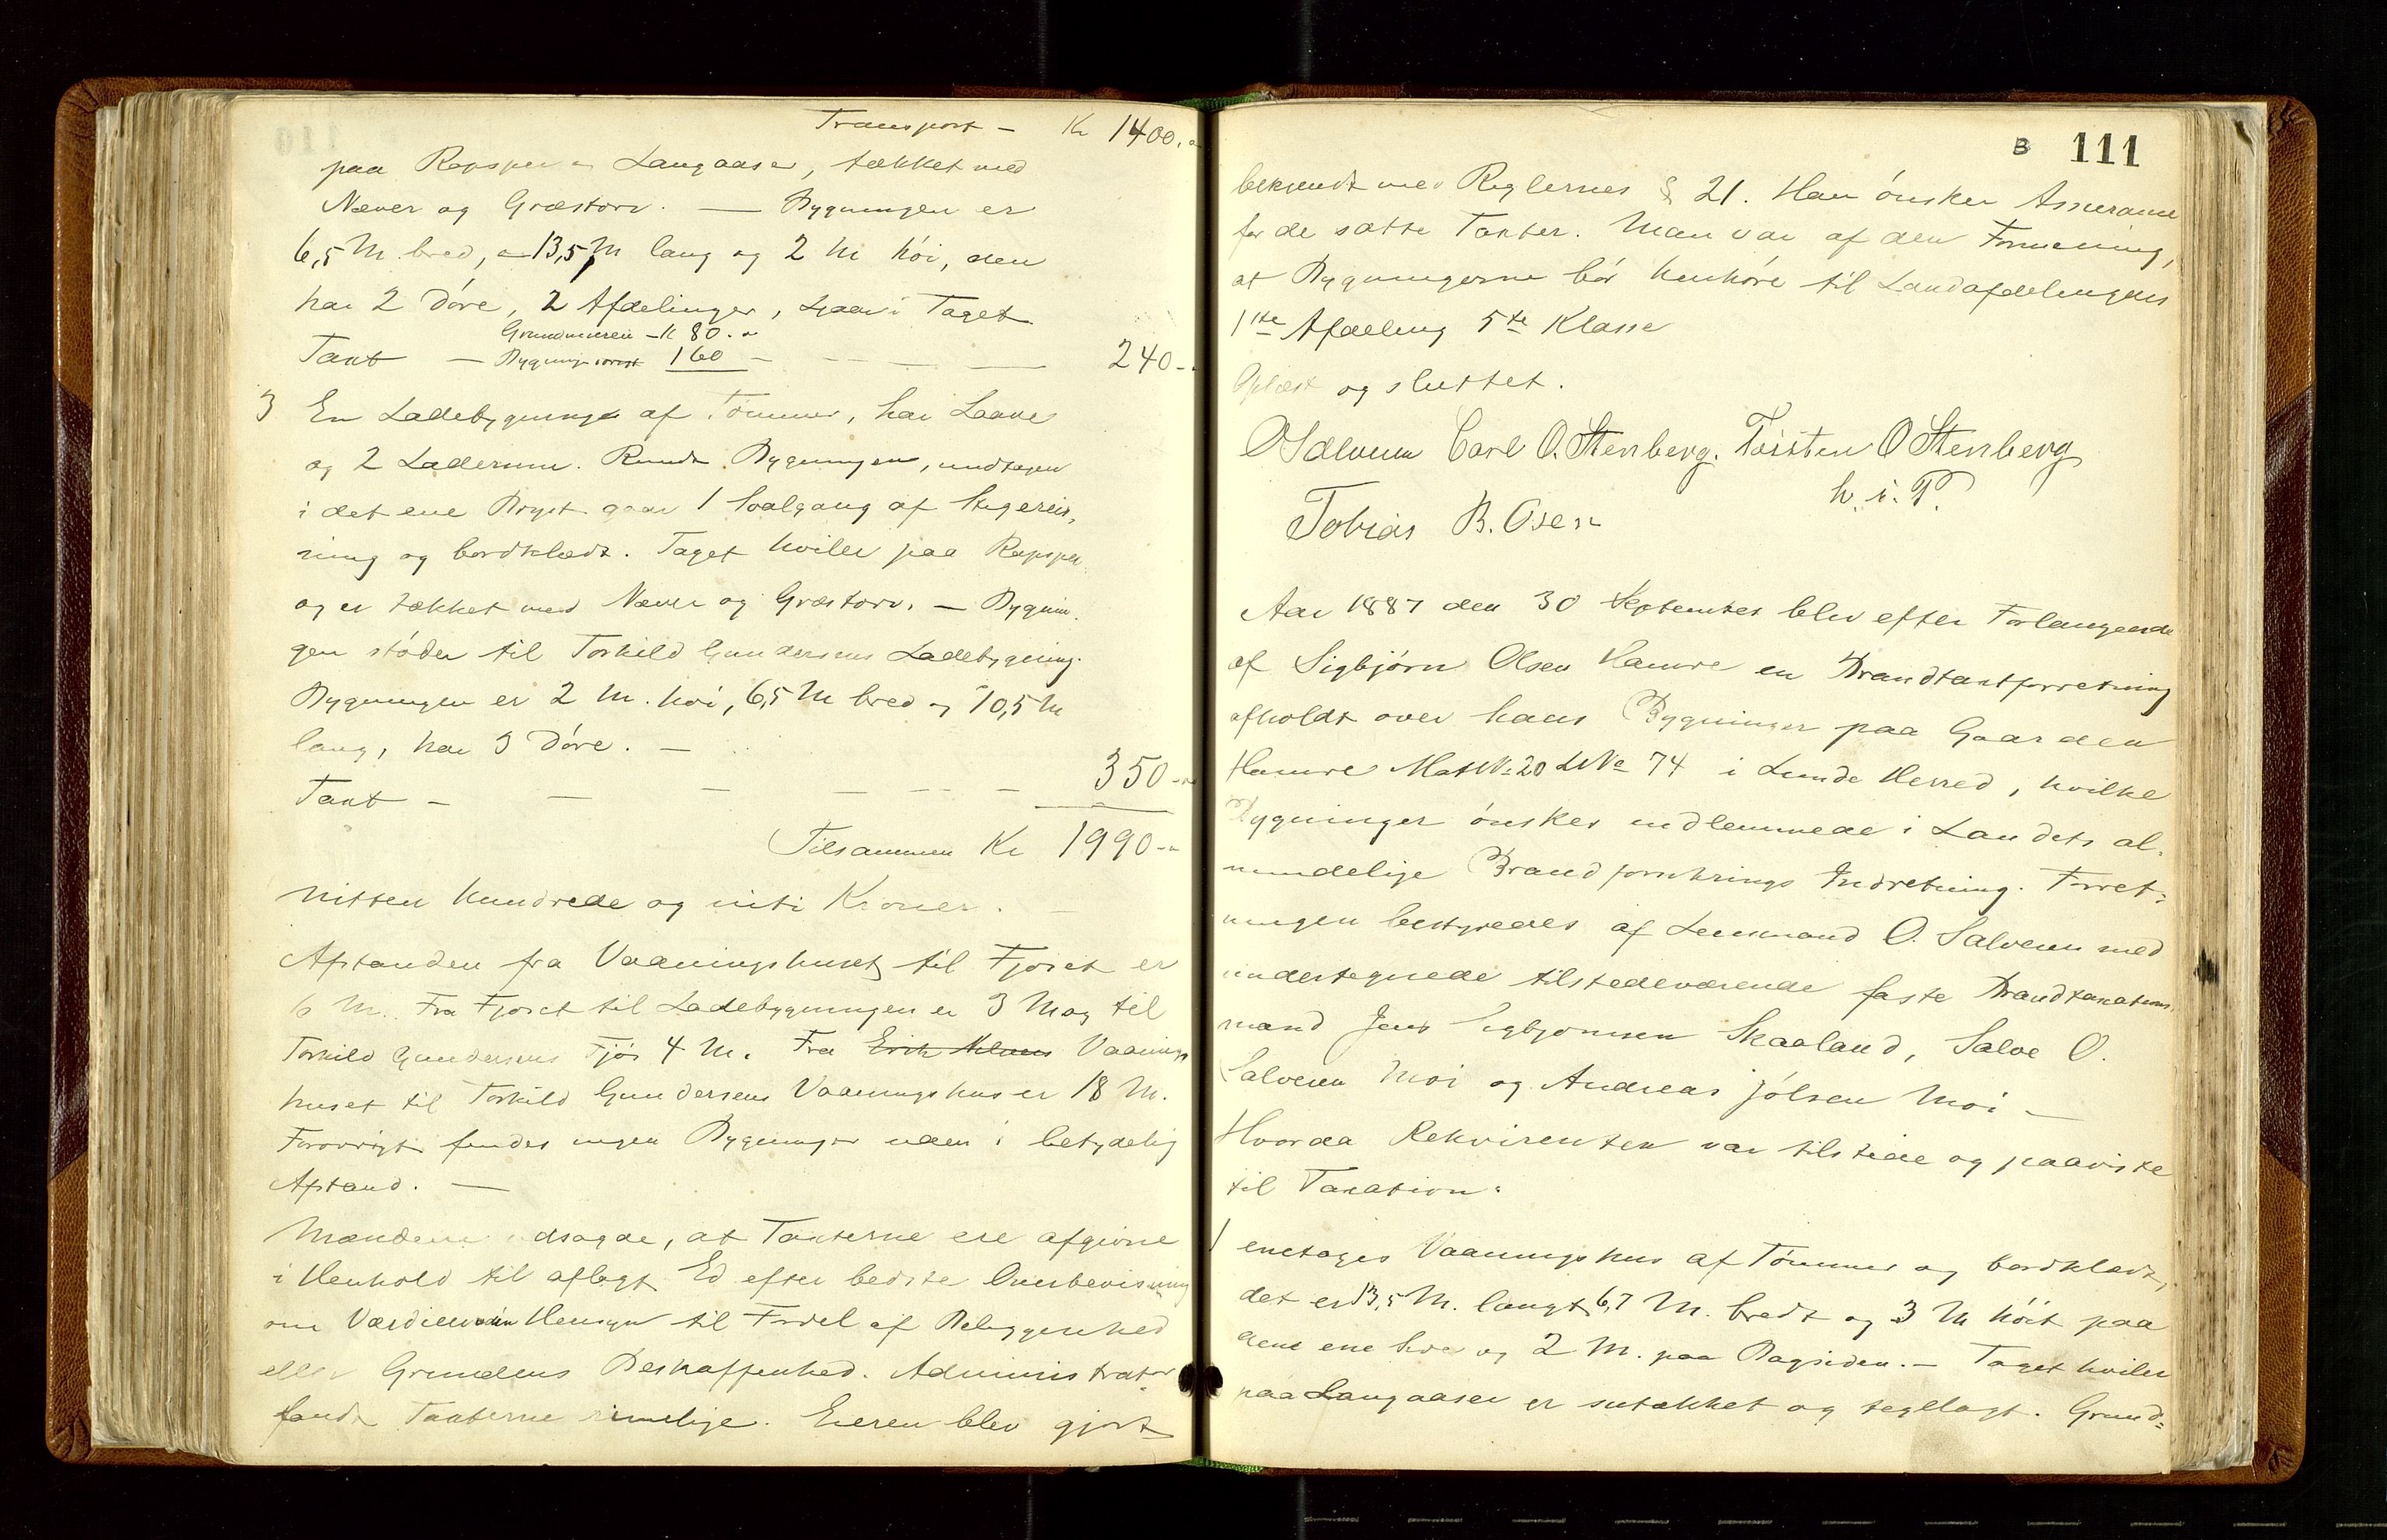 Transport - Kr 1400.
paa Rapsper og Langaaser, tækket med
Næver og Græstorv. — Bygningen er
6,5 M. bred, 13,5 M lang og 2 M høi, den
har 2 Døre, 2 Afdelinger, i Taget
Grundmuren - Kr 80.
Taxt — Bygningen 160 — — — 240 -
3 En Ladebygning af Tømmer, har Laave
og 2 Laderum. Rundt Bygningen, undtagen
i det ene gaar 1 Svalgang af Stavreis,
ning og bordklædt. Taget hviler paa Rapsper
og er tækket med Næver og Græstorv. — Bygnin-
gen støder til Torkild Gundersens Ladebygning.
Bygningen er 2 M. høi, 6,5 M bred og 10,5 M
lang, har 3 Døre. —
Taxt - — — — — - 350 -
Tilsammen Kr 1990 -
nitten hundrede og niti Kroner. —
Afstanden fra Vaaningshuset til Fjøset er
6 M. Fra Fjøset til Ladebygningen er 3 M og til
Torkild Gundersens Fjøs 4 M. Fra Vaanings
huset til Torkild Gundersens Vaaningshus er 18 M.
Forøvrigt findes ingen Bygninger uden i betydelig
Afstand. —
Mændene udsagde, at Taxterne ere afgivne
i Henhold til aflagt Ed efter bedste Overbevisning
om Værdien uden Hensyn til Fordel af Beliggenhed
eller Grundens Beskaffenhed. Administrator
fandt Taxterne rimelige. Eieren blev gjort
B 111
bekjendt med Reglernes § 21. Han ønsker Assurance
for de satte Taxter. Man var af den Formening,
at Bygningerne bør henhøre til Landafdelingens
1ste Afdeling 5te Klasse
Oplæst og sluttet.
O Salvesen Carl O. Stenberg. Torsten O Stenberg
h. i. P.
Tobias B. Osen
Aar 1887 den 30 September blev efter Forlangende
af Sigbjørn Olsen Hamre en Brandtaxtforretning
afholdt over hans Bygninger paa Gaarden
Hamre Mat № 20 L№ 74 i Lunde Herred, hvilke
Bygninger ønskes indlemmede i Landets al-
mindelige Brandforsikrings Indretning. Forret-
ningen bestyredes af Lensmand O. Salvesen med
undertegnede tilstedeværende faste Brandtaxations
mænd Jens Sigbjørnsen Skaaland, Salve O.
Salvesen Moi og Andreas Jølsen Moi —
Hvorda Rekvirenten var tilstede og paaviste
til Taxation:
1 enetages Vaaningshus af Tømmer og bordklædt,
det er 13,5 M. langt 6,7 M. bredt og 3 M høit paa
dens ene Side og 2 M. paa Bagsiden. — Taget hviler
paa Langaaser er sutækket og tegllagt. Grund-